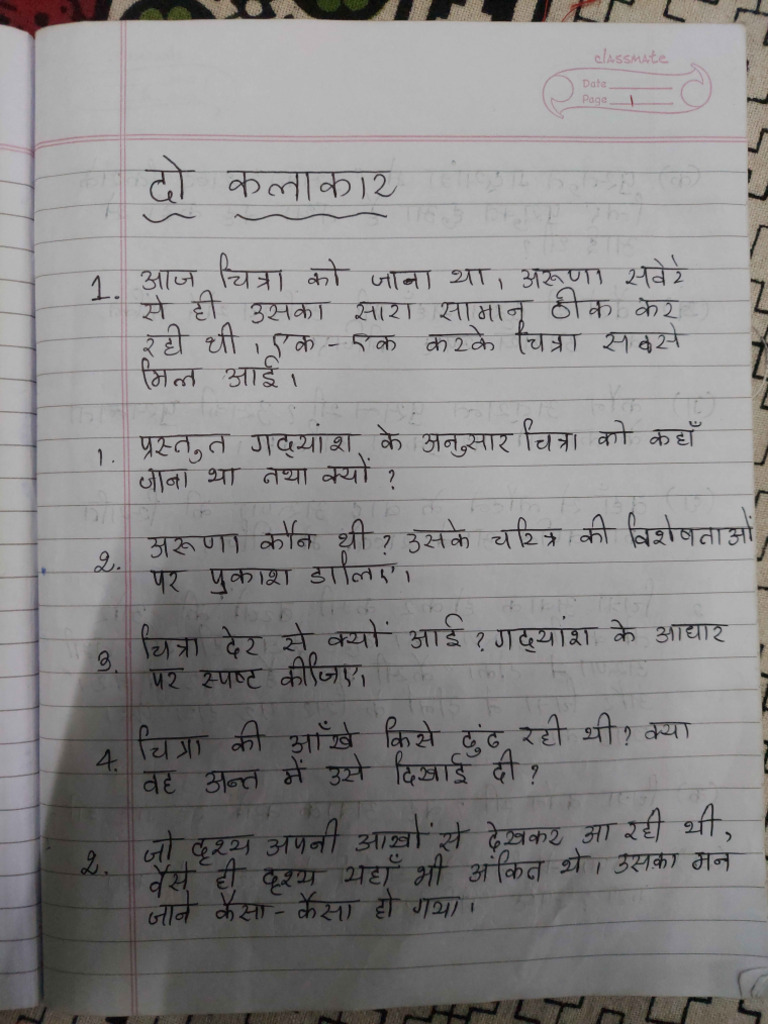 classmate
Date
Page 1
दो कलाकार
1. आज चित्रा को जाना था। अरूणा सवेरे
से ही उसका सारा सामान ठीक कर
रही थी। एक-एक करके चित्रा सबसे
मिल आई।
1. प्रस्तुत गद्यांश के अनुसार चित्रा को कहाँ
जाना था तथा क्यों?
2. अरूणा कौन थी? उसके चरित्र की विशेषताओं
पर प्रकाश डालिए।
3. चित्रा देर से क्यों आई? गद्यांश के आधार
पर स्पष्ट कीजिए।
4. चित्रा की आँखे किसे ढुंढ रही थी? क्या
वह अन्त में उसे दिखाई दी?
2. जो दृश्य अपनी आखों से देखकर आ रही थी,
वैसे ही दृश्य यहाँ भी अंकित थे। उसका मन
जाने कैसा-कैसा हो गया।